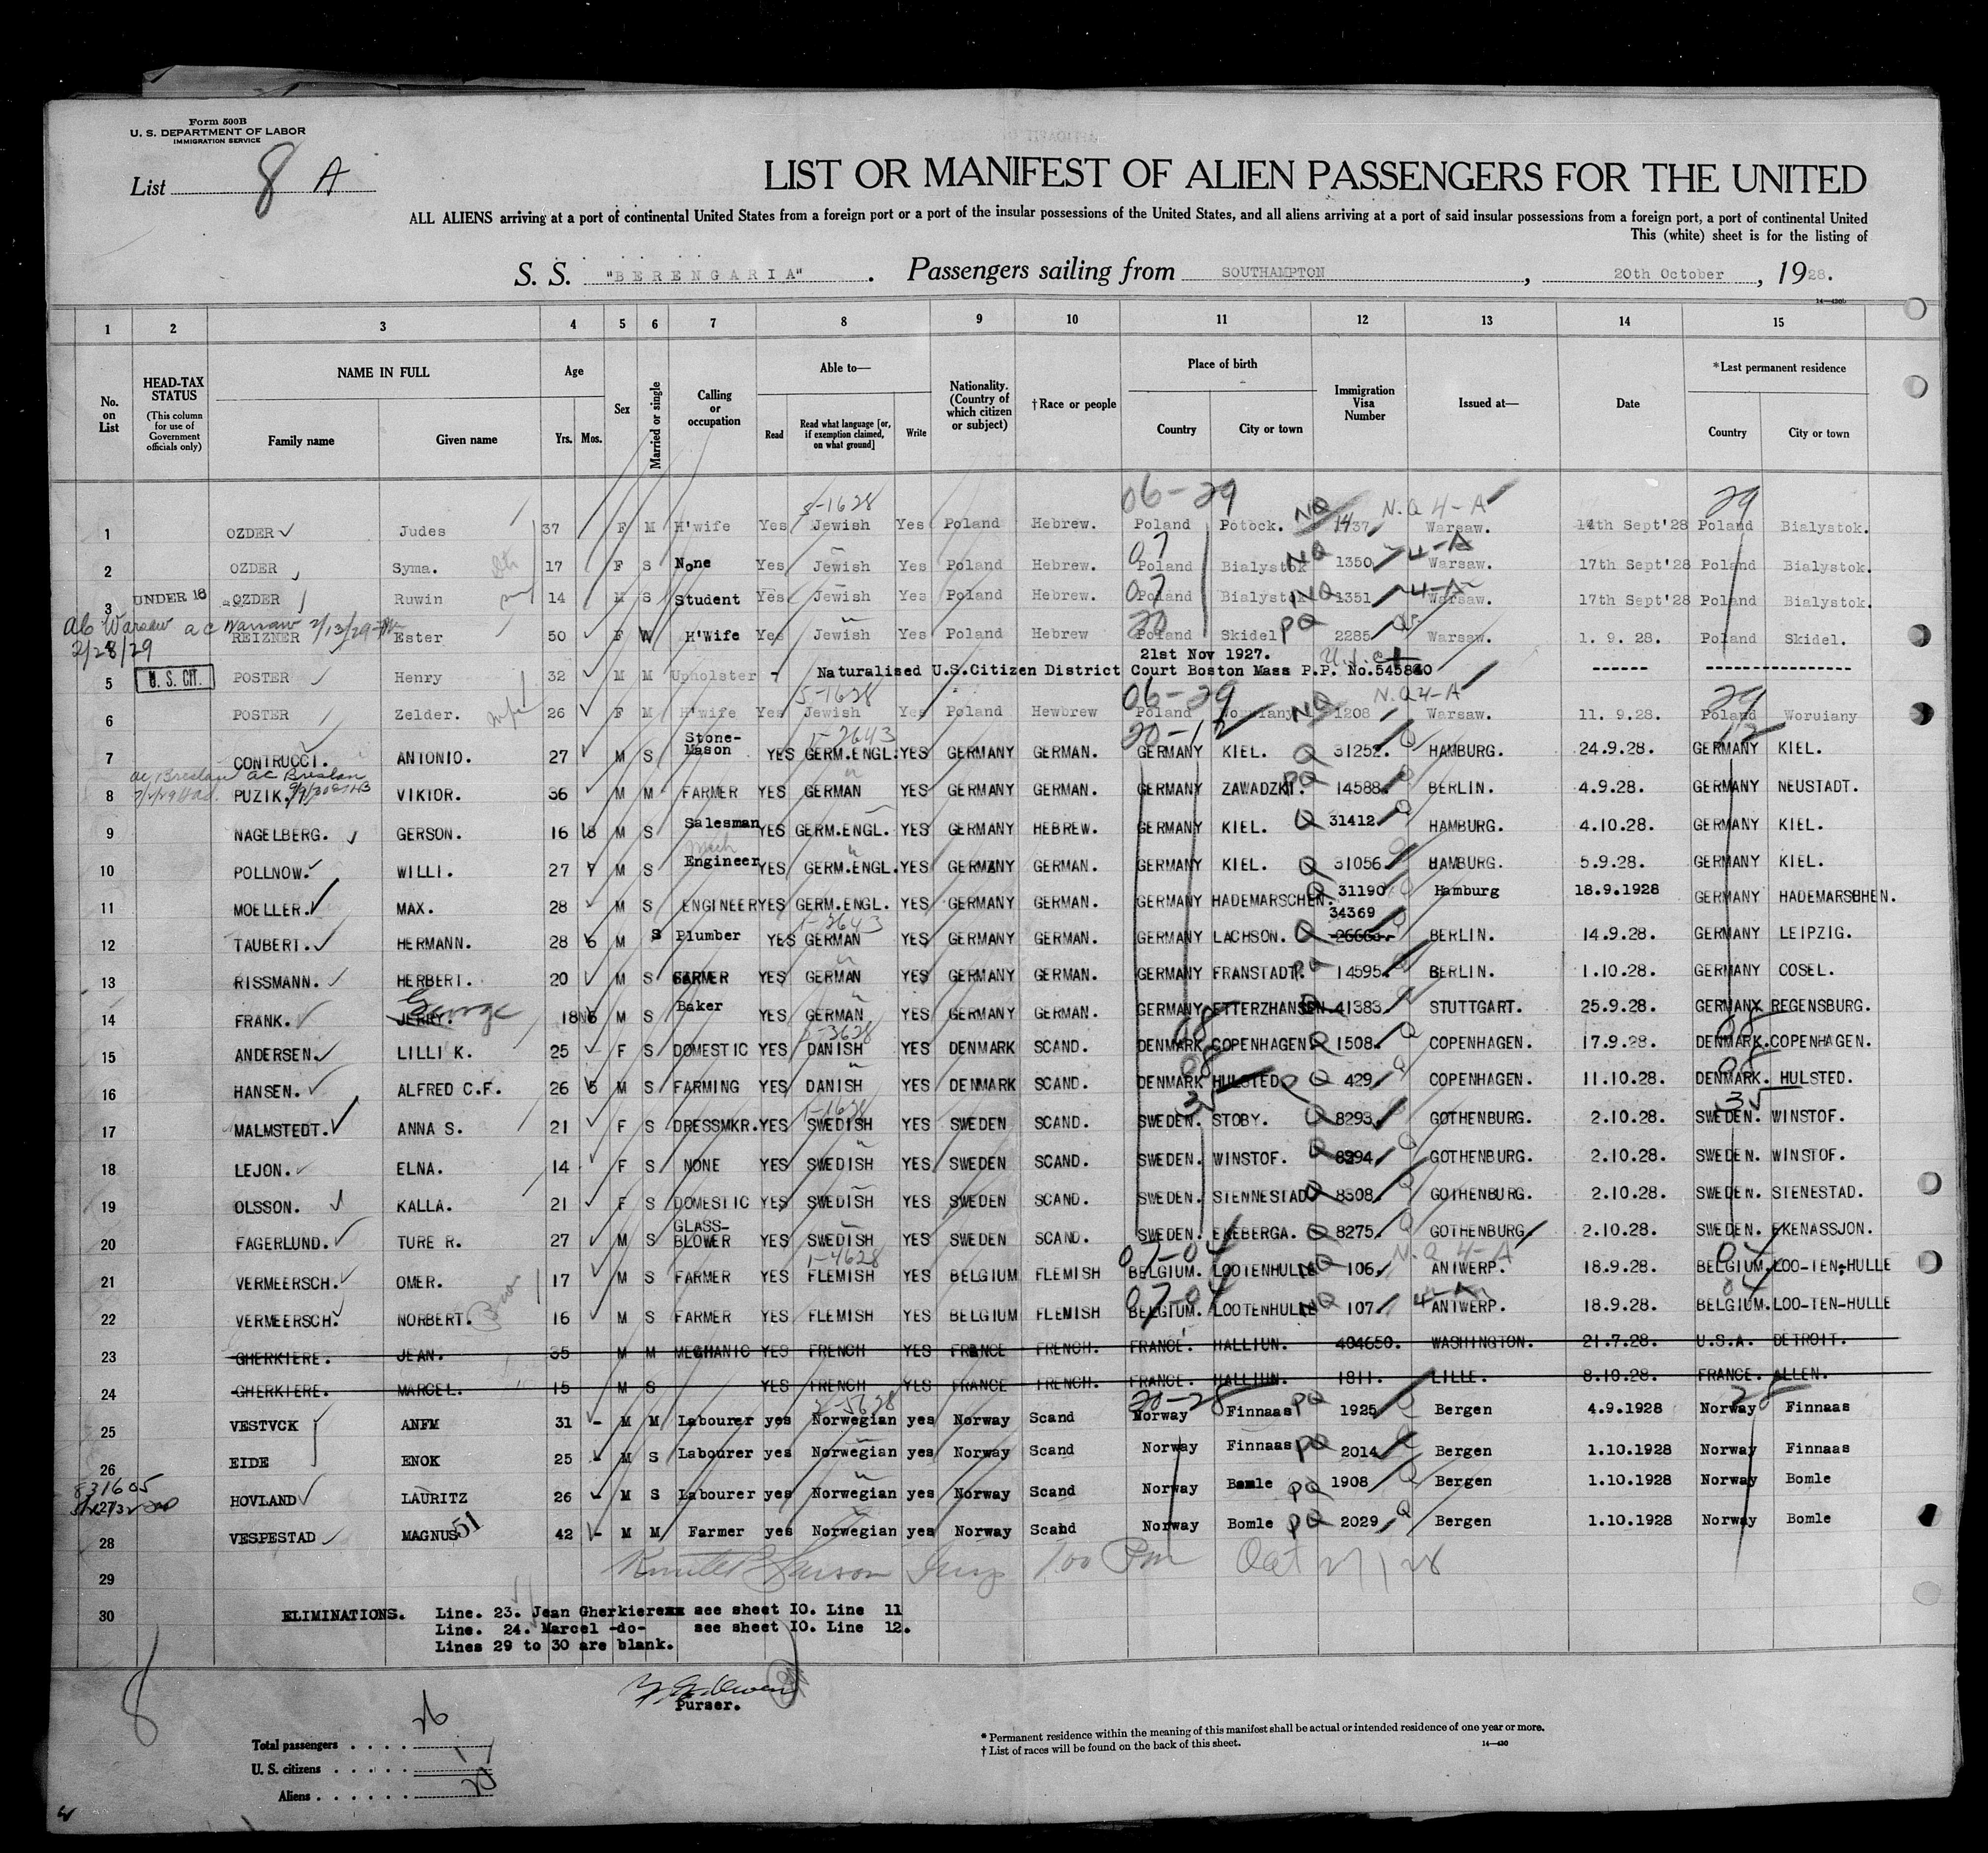 Form 500B
U. S. DEPARTMENT OF LABOR
IMMIGRATION SERVICE
List 8 A
LIST OR MANIFEST OF ALIEN PASSENGERS FOR THE UNITED
ALL ALIENS arriving at a port of continental United States from a foreign port or a port of the insular possessions of the United States, and all aliens arriving at a port of said insular possessions from a foreign port, a port of continental United
This (white) sheet is for the listing of
S. S. "BERENGARIA". Passengers sailing from SOUTHAMPTON, 20th October, 1928.
14—430
1 2 3 4 5 6 7 8 9 10 11 12 13 14 15
No. on List
HEAD-TAX STATUS (This column for use of Government officials only)
NAME IN FULL Family name Given name
Age Yrs. Mos.
Sex
Married or single
Calling or occupation
Able to— Read Read what language [or, if exemption claimed, on what ground] Write
Nationality. (Country of which citizen or subject)
†Race or people
Place of birth Country City or town
Immigration Visa Number
Issued at—
Date
*Last permanent residence Country City or town
5-1628 06-29 NQ N.Q 4-A 29
1 OZDER Judes 37 F M H'wife Yes Jewish Yes Poland Hebrew. Poland Potock. 1437 Warsaw. 14th Sept'28 Poland Bialystok.
07 NQ 4-A
2 OZDER Syma. 17 F S None Yes Jewish Yes Poland Hebrew. Poland Bialystok 1350 Warsaw. 17th Sept'28 Poland Bialystok.
07 NQ 4-A
3 UNDER 16 OZDER Ruwin 14 M S Student Yes Jewish Yes Poland Hebrew. Poland Bialystok 1351 Warsaw. 17th Sept'28 Poland Bialystok.
ac Warsaw ac Warsaw 2/13/29 20 PQ
2/28/29 REIZNER Ester 50 F W H'Wife Yes Jewish Yes Poland Hebrew Poland Skidel 2285 Warsaw. 1. 9. 28. Poland Skidel.
21st Nov 1927.
5 U. S. CIT. POSTER Henry 32 M M Upholster - Naturalised U.S.Citizen District Court Boston Mass P.P. No.545860 ------ ---------------
5-1628 06-29 NQ N.Q 4-A 29
6 POSTER Zelder. 26 F M H'wife Yes Jewish Yes Poland Hewbrew Poland Woruiany 1208 Warsaw. 11. 9.28. Poland Woruiany
1-2643 20-12 12
7 CONTRUCCI. ANTONIO. 27 M S Stone-Mason YES GERM.ENGL. YES GERMANY GERMAN. GERMANY KIEL. Q 31252. HAMBURG. 24.9.28. GERMANY KIEL.
ac Breslau ac Breslau
8 PUZIK. VIKIOR. 36 M M FARMER YES GERMAN YES GERMANY GERMAN. GERMANY ZAWADZKI. PQ 14588. BERLIN. 4.9.28. GERMANY NEUSTADT.
9 NAGELBERG. GERSON. 16 M S Salesman YES GERM.ENGL. YES GERMANY HEBREW. GERMANY KIEL. Q 31412. HAMBURG. 4.10.28. GERMANY KIEL.
Mech
10 POLLNOW. WILLI. 27 M S Engineer YES GERM.ENGL. YES GERMANY GERMAN. GERMANY KIEL. Q 31056. HAMBURG. 5.9.28. GERMANY KIEL.
11 MOELLER. MAX. 28 M S ENGINEER YES GERM.ENGL. YES GERMANY GERMAN. GERMANY HADEMARSCHEN. Q 31190 Hamburg 18.9.1928 GERMANY HADEMARSBHEN.
1-2643 34369
12 TAUBERT. HERMANN. 28 6 M S Plumber YES GERMAN YES GERMANY GERMAN. GERMANY LACHSON. Q BERLIN. 14.9.28. GERMANY LEIPZIG.
13 RISSMANN. HERBERT. 20 M S FARMER YES GERMAN YES GERMANY GERMAN. GERMANY FRANSTADT. PQ 14595. BERLIN. 1.10.28. GERMANY COSEL.
George
14 FRANK. JERRY. 18 6 M S Baker YES GERMAN YES GERMANY GERMAN. GERMANY ETTERZHANSEN. 41383. STUTTGART. 25.9.28. GERMANY REGENSBURG.
1-3628 08 08
15 ANDERSEN. LILLI K. 25 F S DOMESTIC YES DANISH YES DENMARK SCAND. DENMARK COPENHAGEN. Q 1508. COPENHAGEN. 17.9.28. DENMARK. COPENHAGEN.
08 08
16 HANSEN. ALFRED C.F. 26 6 M S FARMING YES DANISH YES DENMARK SCAND. DENMARK HULSTED. Q 429. COPENHAGEN. 11.10.28. DENMARK. HULSTED.
1-1628 35 35
17 MALMSTEDT. ANNA S. 21 F S DRESSMKR. YES SWEDISH YES SWEDEN SCAND. SWEDEN. STOBY. Q 8293. GOTHENBURG. 2.10.28. SWEDEN. WINSTOF.
18 LEJON. ELNA. 14 F S NONE YES SWEDISH YES SWEDEN SCAND. SWEDEN. WINSTOF. Q 8294 GOTHENBURG. 2.10.28. SWEDEN. WINSTOF.
19 OLSSON. KALLA. 21 F S DOMESTIC YES SWEDISH YES SWEDEN SCAND. SWEDEN. STENNESTAD. Q 8308. GOTHENBURG. 2.10.28. SWEDEN. STENESTAD.
20 FAGERLUND. TURE R. 27 M S GLASS-BLOWER YES SWEDISH YES SWEDEN SCAND. SWEDEN. EKEBERGA. Q 8275. GOTHENBURG. 2.10.28. SWEDEN. EKENASSJON.
1-4628 07-04 N.Q 4-A 04
21 VERMEERSCH. OMER. 17 M S FARMER YES FLEMISH YES BELGIUM FLEMISH BELGIUM. LOOTENHULLE NQ 106. ANTWERP. 18.9.28. BELGIUM. LOO-TEN-HULLE
07-04 4-A 04
22 VERMEERSCH. NORBERT. 16 M S FARMER YES FLEMISH YES BELGIUM FLEMISH BELGIUM. LOOTENHULLE NQ 107. ANTWERP. 18.9.28. BELGIUM. LOO-TEN-HULLE
23 GHERKIERE. JEAN. 35 M M MECHANIC YES FRENCH YES FRANCE FRENCH. FRANCE. HALLIUN. 404650. WASHINGTON. 21.7.28. U.S.A. DETROIT.
24 GHERKIERE. MARCEL. 15 M S YES FRENCH YES FRANCE FRENCH. FRANCE. HALLIUN. 1811. LILLE. 8.10.28. FRANCE. ALLEN.
2-5628 20-28 28
25 VESTVCK ANFM 31 - M M Labourer yes Norwegian yes Norway Scand Norway Finnaas PQ 1925 Bergen 4.9.1928 Norway Finnaas
26 EIDE ENOK 25 - M S Labourer yes Norwegian yes Norway Scand Norway Finnaas PQ 2014 Bergen 1.10.1928 Norway Finnaas
831605
27 HOVLAND LAURITZ 26 - M S Labourer yes Norwegian yes Norway Scand Norway Bomle PQ 1908 Bergen 1.10.1928 Norway Bomle
28 VESPESTAD MAGNUS 51 42 - M M Farmer yes Norwegian yes Norway Scand Norway Bomle PQ 2029 Bergen 1.10.1928 Norway Bomle
29 Larson Insp 1.00 Pm Oct 27/28
30
ELIMINATIONS. Line. 23. Jean Gherkiere see sheet IO. Line 11
Line. 24. Marcel -do- see sheet IO. Line 12.
Lines 29 to 30 are blank.
8
Purser.
Total passengers . . . . 26
U. S. citizens . . . . . 1
Aliens . . . . . . 25
* Permanent residence within the meaning of this manifest shall be actual or intended residence of one year or more.
† List of races will be found on the back of this sheet.
14—430